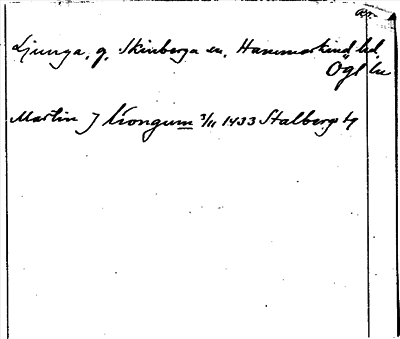 Ljunga, g. Skönberga sn. Hammarkind hd.
Ögl ln
Martin J liongum 3/11 1433 Stalberg